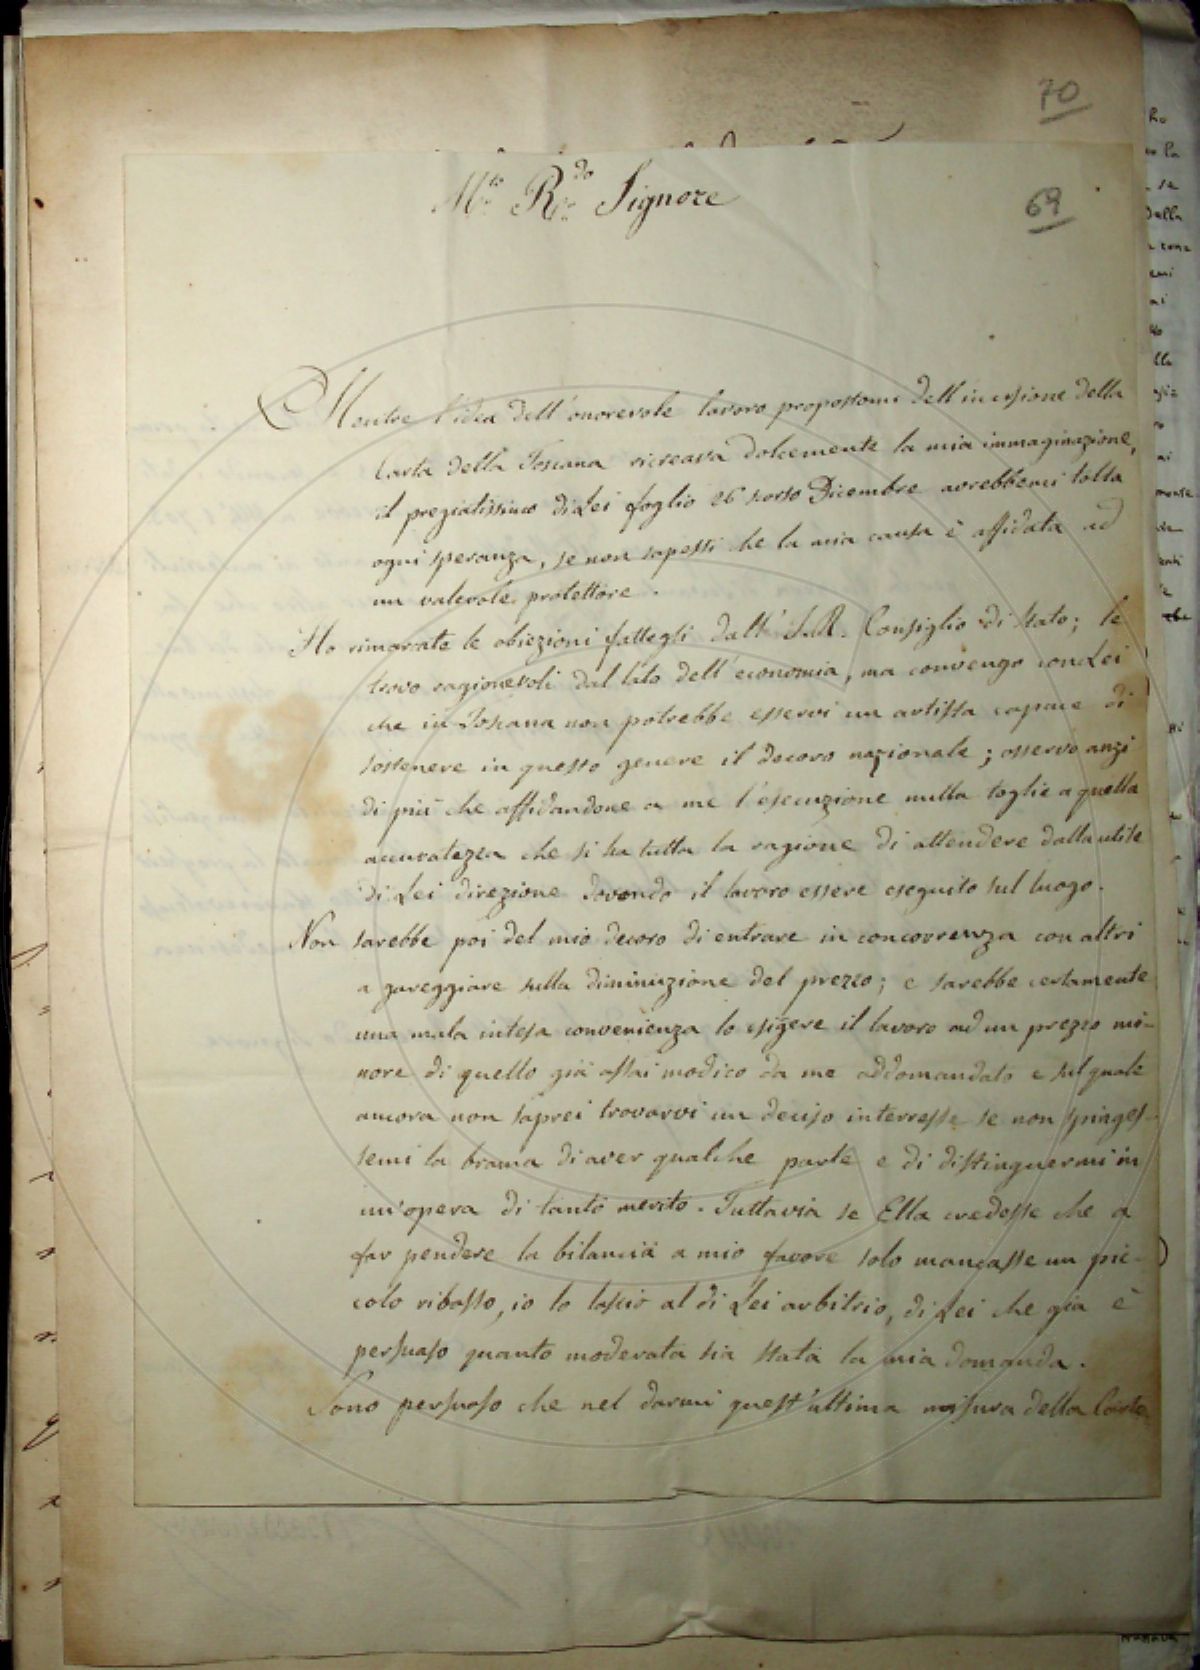 70
69
M.to R.do Signore
Mentre l'idea dell'onorevole lavoro propostomi dell'incisione della
Carta della Toscana ricreava dolcemente la mia immaginazione,
il pregiatissimo di Lei foglio 26 scorso Dicembre avrebbemi tolta
ogni speranza, se non sapessi che la mia causa è affidata ad
un valevole protettore.
Ho rimarcate le obiezioni fattegli dall' I.R. Consiglio di Stato; le
trovo ragionevoli dal lato dell'economia, ma convengo con Lei
che in Toscana non potrebbe esservi un artista capace di
sostenere in questo genere il decoro nazionale; osservo anzi
di più che affidandone a me l'esecuzione nulla toglie a quella
accuratezza che si ha tutta la ragione di attendere dalla utile
di Lei direzione dovendo il lavoro essere eseguito sul luogo.
Non sarebbe poi del mio decoro di entrare in concorrenza con altri
a gareggiare sulla diminuzione del prezzo; e sarebbe certamente
una mala intesa convenienza lo esigere il lavoro ad un prezzo mi-
nore di quello già assai modico da me addomandato e sul quale
ancora non saprei trovarvi un deciso interresse se non spinges-
semi la brama di aver qualche parte e di distinguermi in
un'opera di tanto merito. Tuttavia se Ella credesse che a
far pendere la bilancia a mio favore solo mancasse un pic-
colo ribasso, io lo lascio al di Lei arbitrio, di Lei che già è
persuaso quanto moderata sia stata la mia domanda.
Sono persuaso che nel darmi quest'ultima misura della Carta